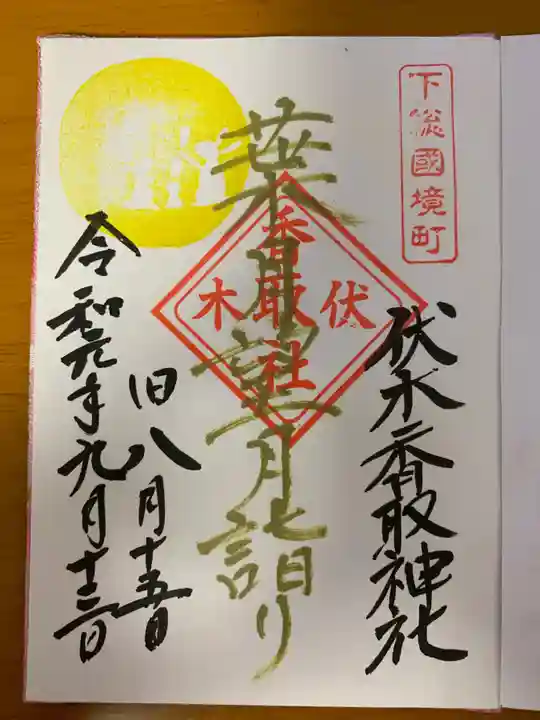 下総國境町
伏木香取神社
葉月望月詣り
伏木
香取社
旧八月十五日
令和元年九月十三日